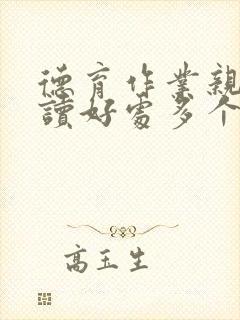 德育作業親
讀好處多个
高玉生